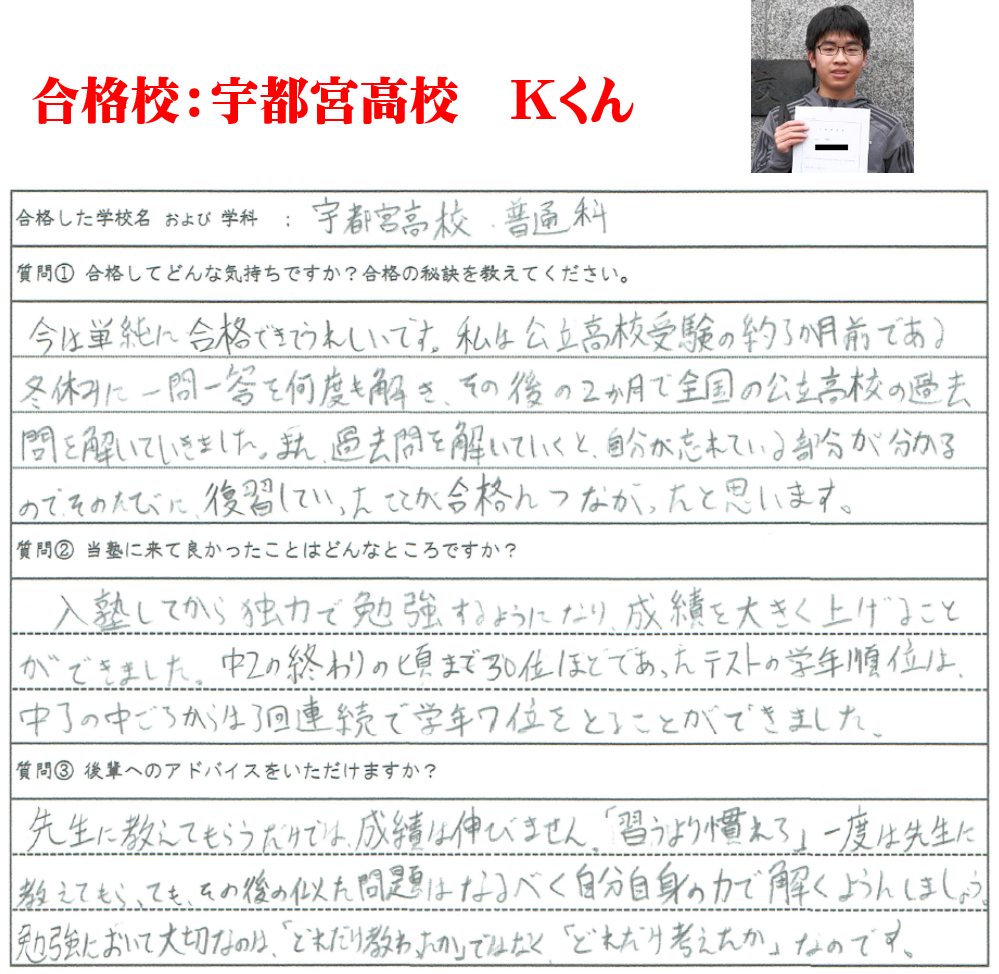 合格校：宇都宮高校　Kくん
合格した学校名 および 学科 ： 宇都宮高校・普通科
質問① 合格してどんな気持ちですか？合格の秘訣を教えてください。
今は単純に合格できてうれしいです。私は公立高校受験の約3か月前である
冬休みに一問一答を何度も解き、その後の2か月で全国の公立高校の過去
問を解いていきました。また、過去問を解いていくと、自分が忘れている部分が分かる
ので、そのたびに、復習していったことが合格へつながったと思います。
質問② 当塾に来て良かったことはどんなところですか？
入塾してから独力で勉強するようになり、成績を大きく上げること
ができました。中2の終わりの頃まで30位ほどであったテストの学年順位は、
中3の中ごろからは3回連続で学年7位をとることができました。
質問③ 後輩へのアドバイスをいただけますか？
先生に教えてもらうだけでは、成績は伸びません。「習うより慣れろ」一度は先生に
教えてもらっても、その後の似た問題はなるべく自分自身の力で解くようにしましょう。
勉強において大切なのは、「どれだけ教わったか」ではなく、「どれだけ考えたか」なのです。